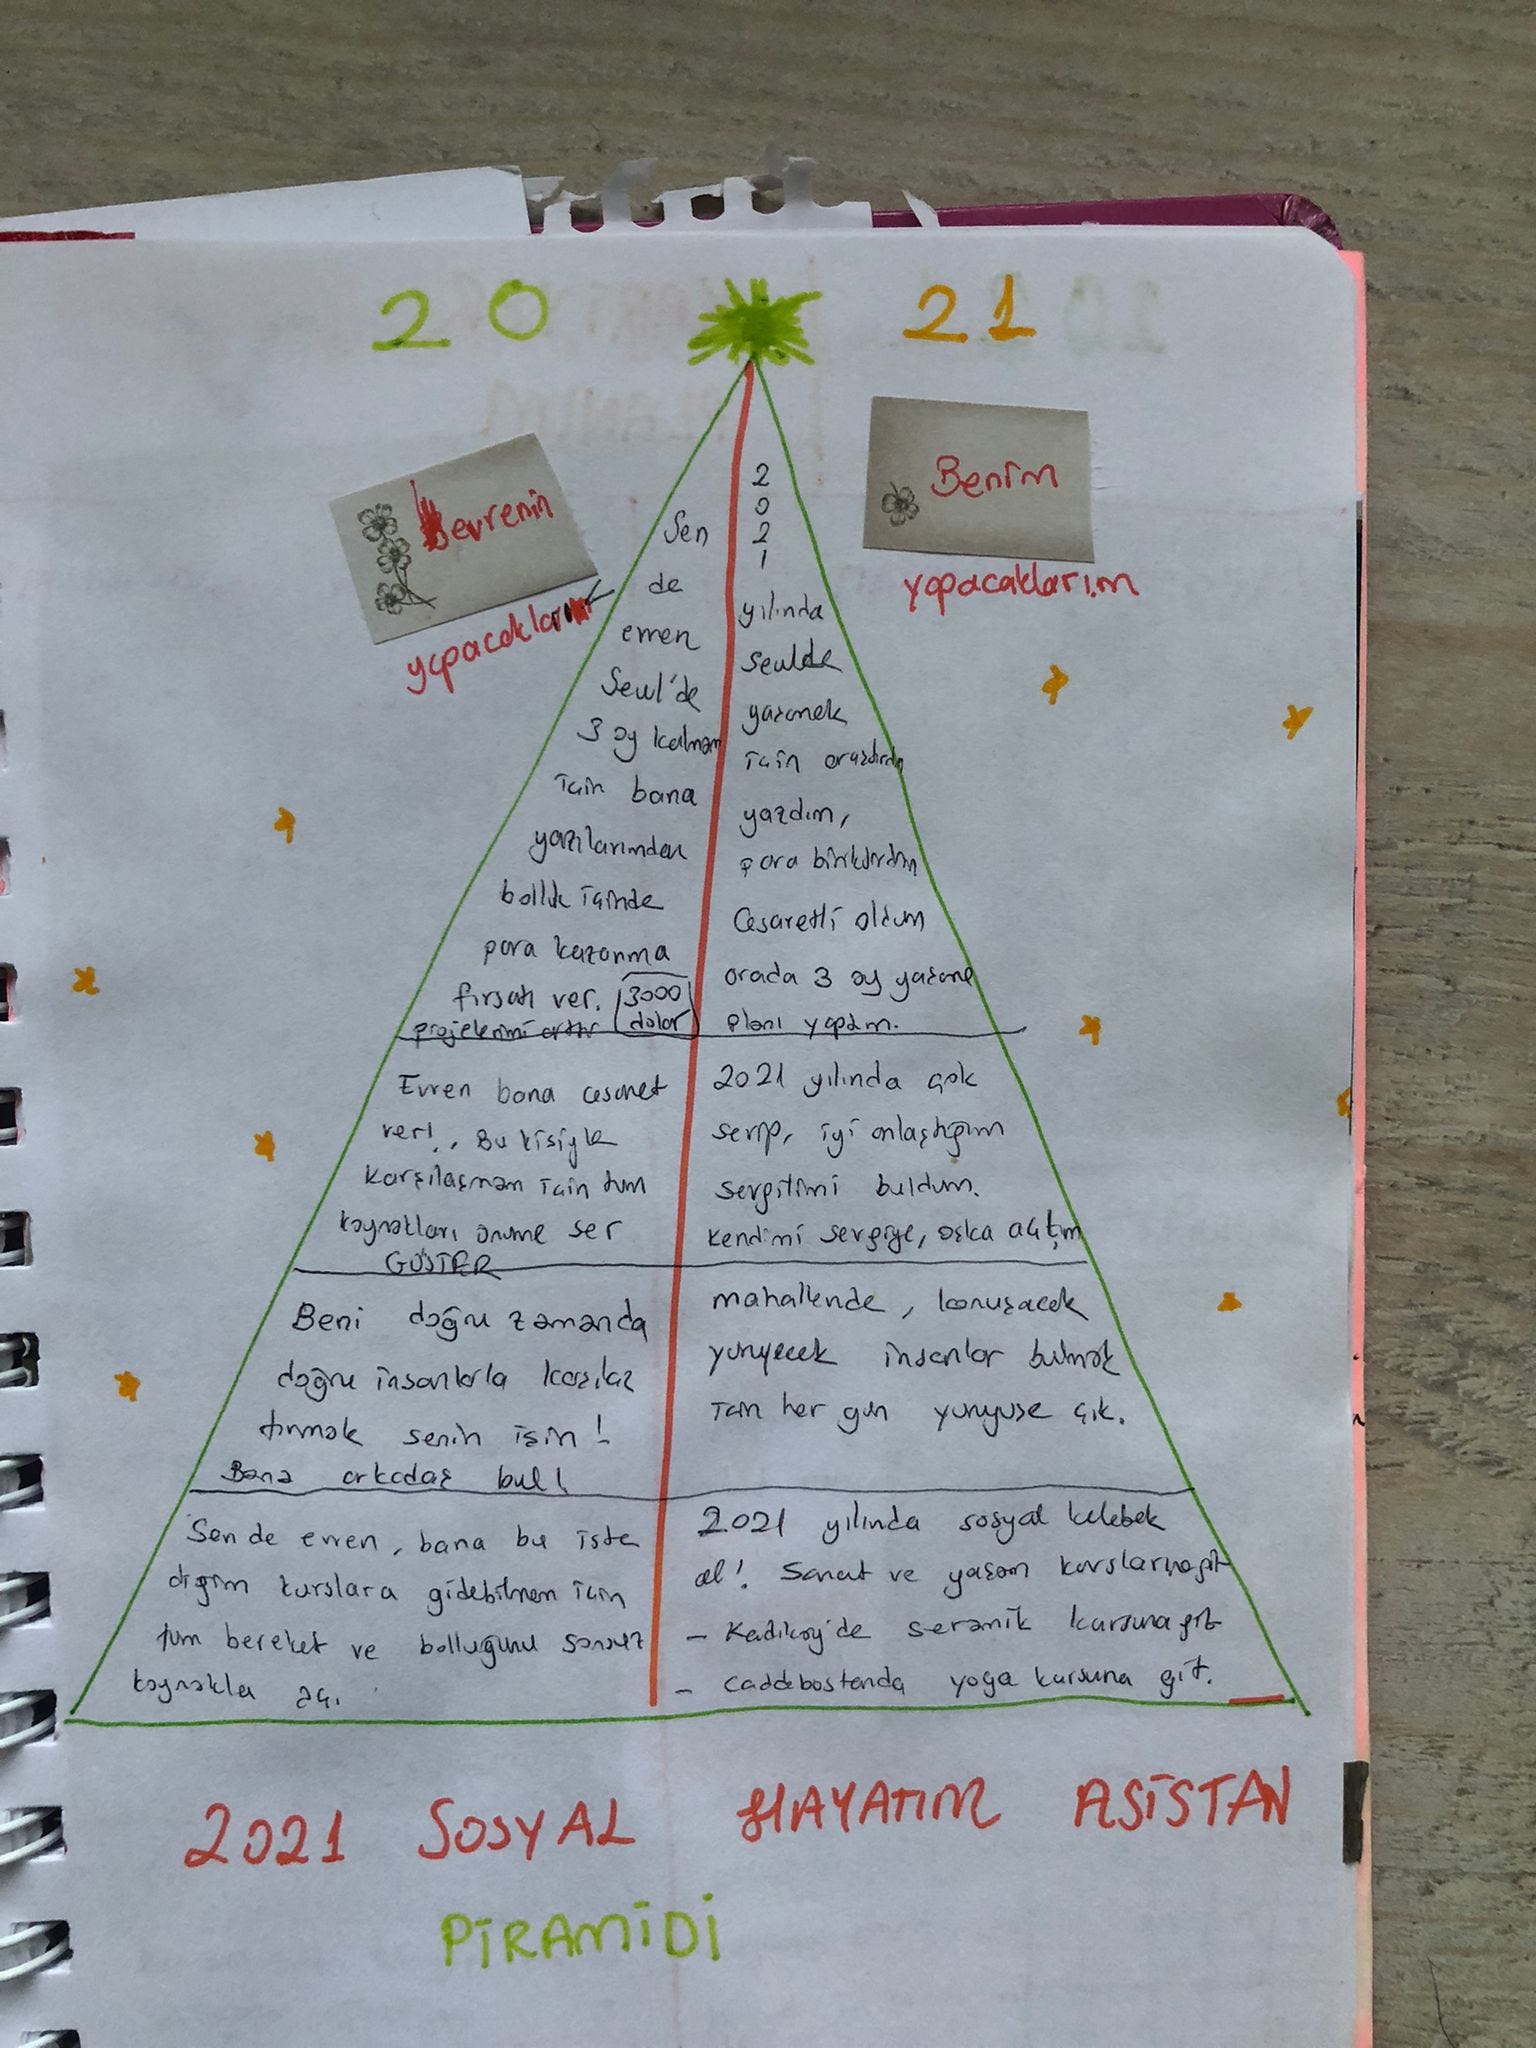 20 21
evrenin
yapacakları
Benim
yapacaklarım
Sen
de
evren
Seul'de
3 ay kalmam
için bana
yazılarımdan
bolluk içinde
para kazanma
fırsatı ver. 3000
projelerimi arttır dolar
2
0
2
1
yılında
seulde
yaşamak
için araştırdım
yazdım,
para biriktirdim
Cesaretli oldum
orada 3 ay yaşama
planı yaptım.
Evren bana cesaret
ver!, Bu kişiyle
karşılaşmam için tüm
kaynakları önüme ser
GÖSTER
2021 yılında çok
sevip, iyi anlaştığım
sevgilimi buldum.
kendimi sevgiye, aşka açtım
Beni doğru zamanda
doğru insanlarla karşılaş
tırmak senin işin!
Bana arkadaş bul!
mahallende, konuşacak
yürüyecek insanlar bulmak
için her gün yürüyüşe çık.
Sen de evren, bana bu iste
diğim kurslara gidebilmem için
tüm bereket ve bolluğunu sonsuz
kaynakla aç.
2021 yılında sosyal kelebek
ol! Sanat ve yaşam kurslarına git
- Kadıköy'de seramik kursuna git
- Caddebostanda yoga kursuna git.
2021 SOSYAL HAYATIM ASİSTAN
PİRAMİDİ